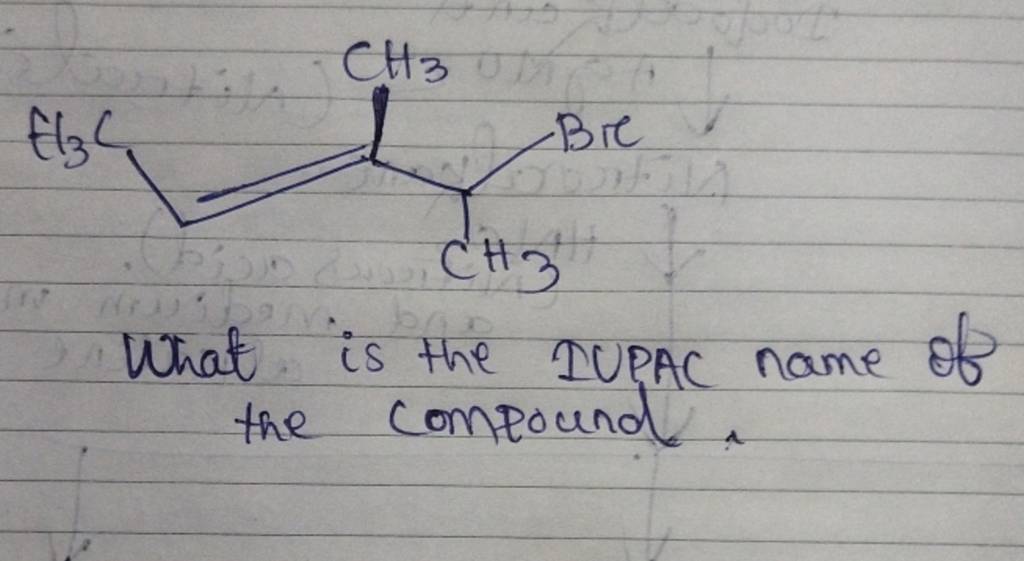 CH3
H3C
Br
CH3
What is the IUPAC name of
the compound.